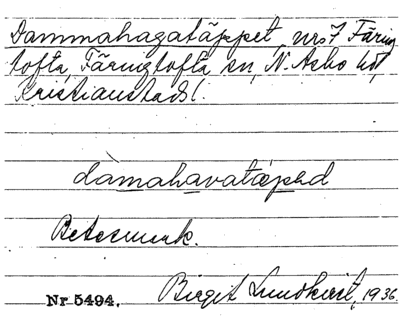 Dammahagatäppet, nrs 7 Färing
tofta, Färingtofta sn, N. Asbo hd,
Kristianstads l.
dàmahavatæpəd
Betesmark.
Birgit Lundkvist, 1936.
Nr 5494.